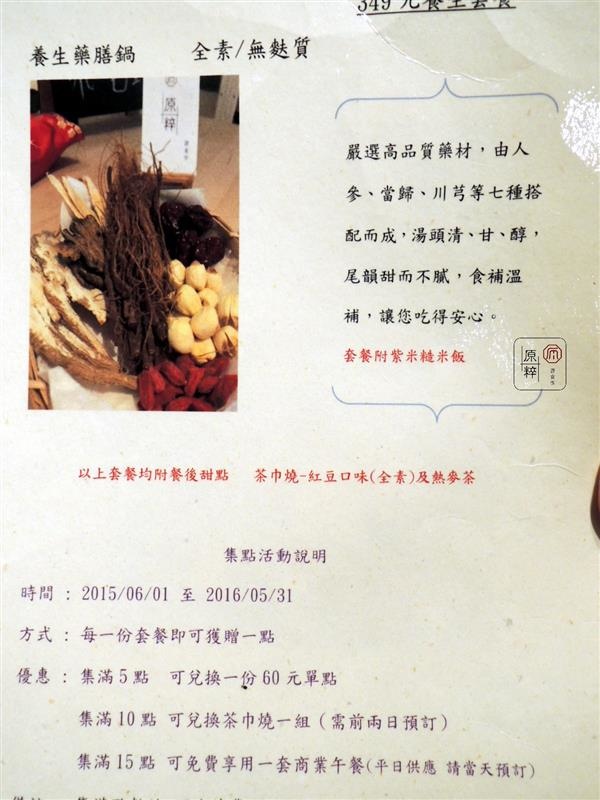 349元養生套餐
養生藥膳鍋 全素/無麩質
原粹
嚴選高品質藥材，由人
參、當歸、川芎等七種搭
配而成，湯頭清、甘、醇，
尾韻甜而不膩，食補溫
補，讓您吃得安心。
套餐附紫米糙米飯
原粹
以上套餐均附餐後甜點 茶巾燒-紅豆口味(全素)及熱麥茶
集點活動說明
時間 : 2015/06/01 至 2016/05/31
方式 : 每一份套餐即可獲贈一點
優惠 : 集滿5點 可兌換一份60元單點
集滿10點 可兌換茶巾燒一組 (需前兩日預訂)
集滿15點 可免費享用一套商業午餐(平日供應 請當天預訂)